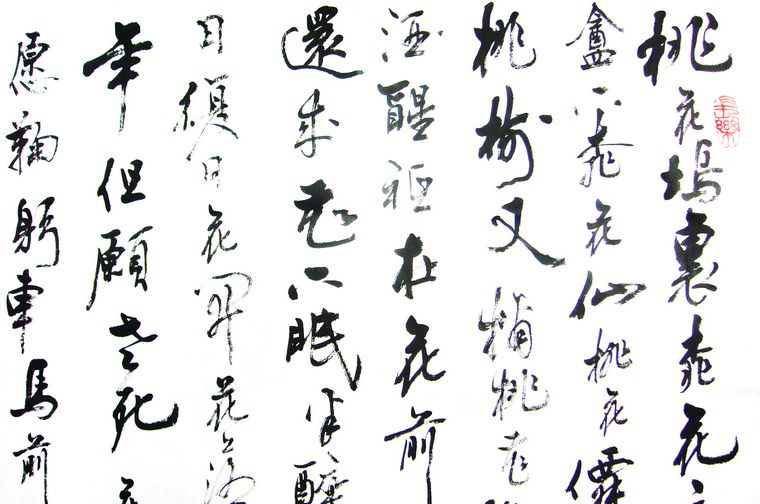 長樂
桃花塢裏桃花
盦下桃花仙桃花僊
桃樹又摘桃花
酒醒祗在花前
還來花下眠半醒
日復日花開花落
年但願老死花
愿鞠躬車馬前